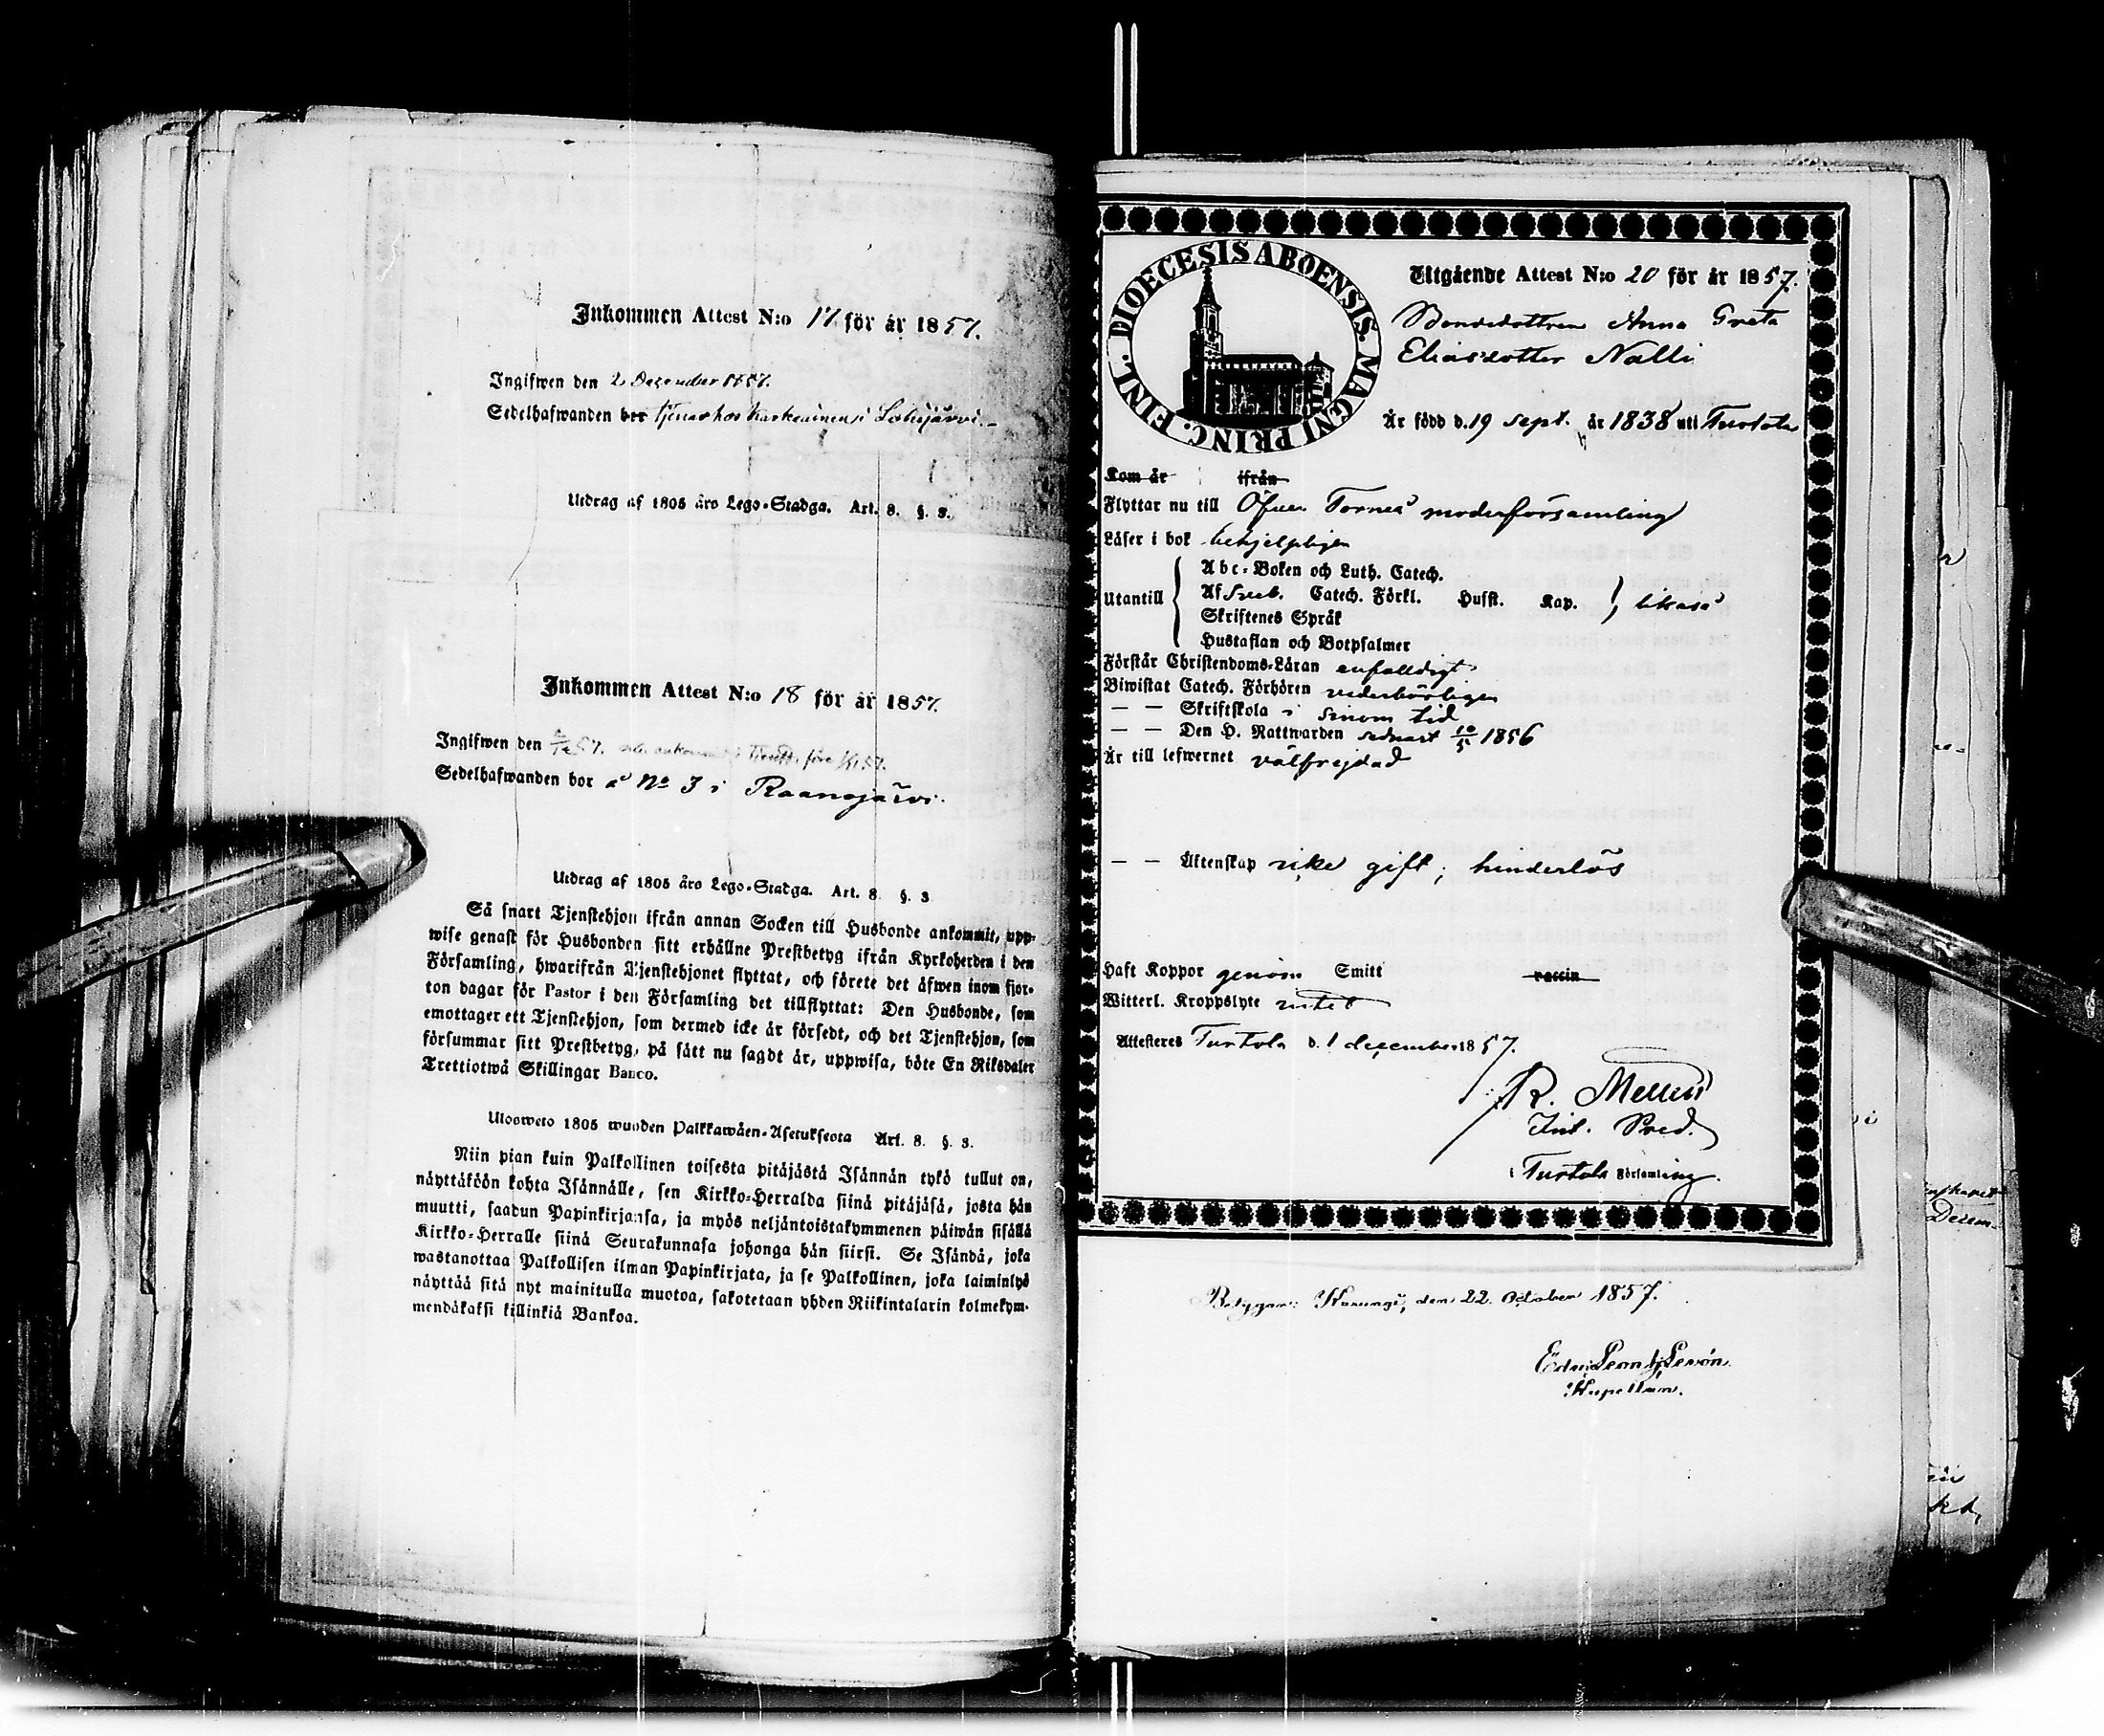 Inkommen Attest N:o 17 för år 1857.
Ingifwen den 2 December 1857.
Sedelhafwanden bor tjenar hos i Lohijärvi.
Utdrag af 1805 års Lego-Stadga. Art. 8. §. 3.
Inkommen Attest N:o 18 för år 1857.
Ingifwen den
Sedelhafwanden bor å No 3 i Raanojärvi.
Utdrag af 1805 års Lego-Stadga. Art. 8. §. 3.
Så snart Tjenstehjon ifrån annan Socken till Husbonde ankommit, upp-
wise genast för Husbonden sitt erhållne Prestbetyg ifrån Kyrkoherden i den
Församling, hwarifrån Tjenstehjonet flyttat, och förete det äfwen inom fjor-
ton dagar för Pastor i den Församling det tillflyttat: Den Husbonde, som
emottager ett Tjenstehjon, som dermed icke är försedt, och det Tjenstehjon, som
försummar sitt Prestbetyg, på sätt nu sagdt är, uppwisa, böte En Riksdaler
Trettiotwå Skillingar Banco.
Ulosweto 1805 wuoden Palkkawäen-Asetuksesta Art. 8. §. 3.
Niin pian kuin Palkollinen toisesta pitäjästä Isännän tykö tullut on,
näyttäköön kohta Isännälle, sen Kirkko-Herralda siinä pitäjäsä, josta hän
muutti, saadun Papinkirjansa, ja myös neljäntoistakymmenen päiwän sisällä
Kirkko-Herralle siinä Seurakunnasa johonga hän siirsi. Se Isändä, joka
wastanottaa Palkollisen ilman Papinkirjata, ja se Palkollinen, joka laiminlyö
näyttää sitä nyt mainitulla muotoa, sakotetaan yhden Riikintalarin kolmekym-
mendäkaksi killinkiä Bankoa.
DIOECESIS ABOENSIS. MAGNI PRINC. FINL.
Utgående Attest N:o 20 för år 1857.
Bondedottren Anna Greta
Eliasdotter Nalli
Är född d. 19 sept. år 1838 uti Turtola
Kom år ifrån
Flyttar nu till Öfver Torneå moderförsamling
Läser i bok behjelpligen
Utantill
Abc-Boken och Luth. Catech.
Af Sveb. Catech. Förkl. Husst. Kap. likaså
Skriftenes Språk
Hustaflan och Botpsalmer
Förstår Christendoms-Läran enfalldigt
Biwistat Catech. Förhören vederbörligen
— — Skriftskola i sinom tid
— — Den H. Nattwarden sednast 10/5 1856
Är till lefwernet välfrejdad
— — Äktenskap icke gift; hinderlös
Haft Koppor genom Smitt vaccin
Witterl. Kroppslyte intet
Attesteres Turtola d. 1 december 1857.
R. Mellin
Pred.
i Turtola Församling.
Betygar: Karungi, den 22. October 1857.
Kapellan.